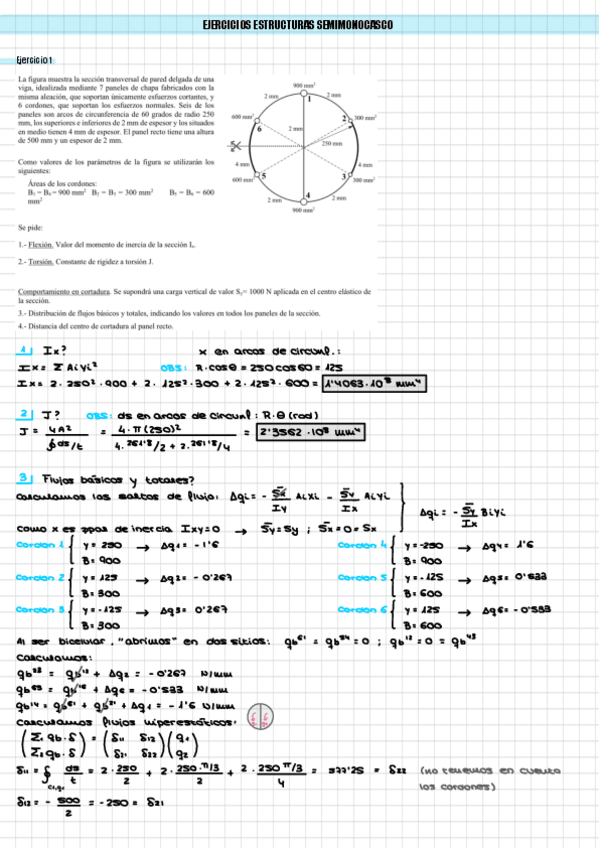 EJERCICIOS ESTRUCTURAS SEMIMONOCASCO
Ejercicio 1
La figura muestra la sección transversal de pared delgada de una
viga, idealizada mediante 7 paneles de chapa fabricados con la
misma aleación, que soportan únicamente esfuerzos cortantes, y
6 cordones, que soportan los esfuerzos normales. Seis de los
paneles son arcos de circunferencia de 60 grados de radio 250
mm, los superiores e inferiores de 2 mm de espesor y los situados
en medio tienen 4 mm de espesor. El panel recto tiene una altura
de 500 mm y un espesor de 2 mm.
Como valores de los parámetros de la figura se utilizarán los
siguientes:
Áreas de los cordones:
B₁ = B₄ = 900 mm² B₂ = B₃ = 300 mm² B₅ = B₆ = 600
mm²
900 mm²
2 mm
2 mm
1
600 mm²
2
300 mm²
6
2 mm
250 mm
4 mm
4 mm
600 mm²
5
3
300 mm²
4
2 mm
2 mm
900 mm²
Se pide:
1.- Flexión. Valor del momento de inercia de la sección Iₓ.
2.- Torsión. Constante de rigidez a torsión J.
Comportamiento en cortadura. Se supondrá una carga vertical de valor Sᵧ= 1000 N aplicada en el centro elástico de
la sección.
3.- Distribución de flujos básicos y totales, indicando los valores en todos los paneles de la sección.
4.- Distancia del centro de cortadura al panel recto.
1 Ix? x en arcos de circunf.:
Ix = Σ Ai yi² OBS: R·cosθ = 250 cos60 = 125
Ix = 2 · 250² · 900 + 2 · 125² · 300 + 2 · 125² · 600 = 1'4063·10⁸ mm⁴
2 J? OBS: ds en arcos de circunf: R·θ (rad)
J = 4A² / ∮ds/t = 4·π(250)² / 4·261'8/2 + 2·261'8/4 = 2'3562 ·10⁸ mm⁴
3 Flujos básicos y totales?
Calculamos los saltos de flujo: Δqi = - S̄x/Iy Ai xi - S̄y/Ix Ai yi
Δqi = - S̄y/Ix Bi yi
Como x es ejes de inercia Ixy=0 → S̄y = Sy ; S̄x = 0 = Sx
Cordon 1 { y = 250 → Δq1 = - 1'6
B = 900
Cordon 4 { y = -250 → Δq4 = 1'6
B = 900
Cordon 2 { y = 125 → Δq2 = - 0'267
B = 300
Cordon 5 { y = -125 → Δq5 = 0'533
B = 600
Cordon 3 { y = -125 → Δq3 = 0'267
B = 300
Cordon 6 { y = 125 → Δq6 = - 0'533
B = 600
Al ser bicelular, "abrimos" en dos sitios: qb⁶¹ = qb⁵⁴ = 0 ; qb¹² = 0 = qb⁴³
Calculamos:
qb²³ = qb¹² + Δq2 = - 0'267 N/mm
qb⁶⁵ = qb¹⁶ + Δq6 = - 0'533 N/mm
qb¹⁴ = qb⁶¹ + qb²¹ + Δq1 = - 1'6 N/mm
Calculamos flujos hiperestáticos.
(Σ₁ qb·δ / Σ₂ qb·δ) = (δ11 δ12 / δ21 δ22) (q1 / q2)
δ11 = ∮ ds/t = 2·250/2 + 2·250·π/3/2 + 2·250π/3/4 = 577'25 = δ22 (no tenemos en cuenta
los cordones)
δ12 = - 500/2 = -250 = δ21